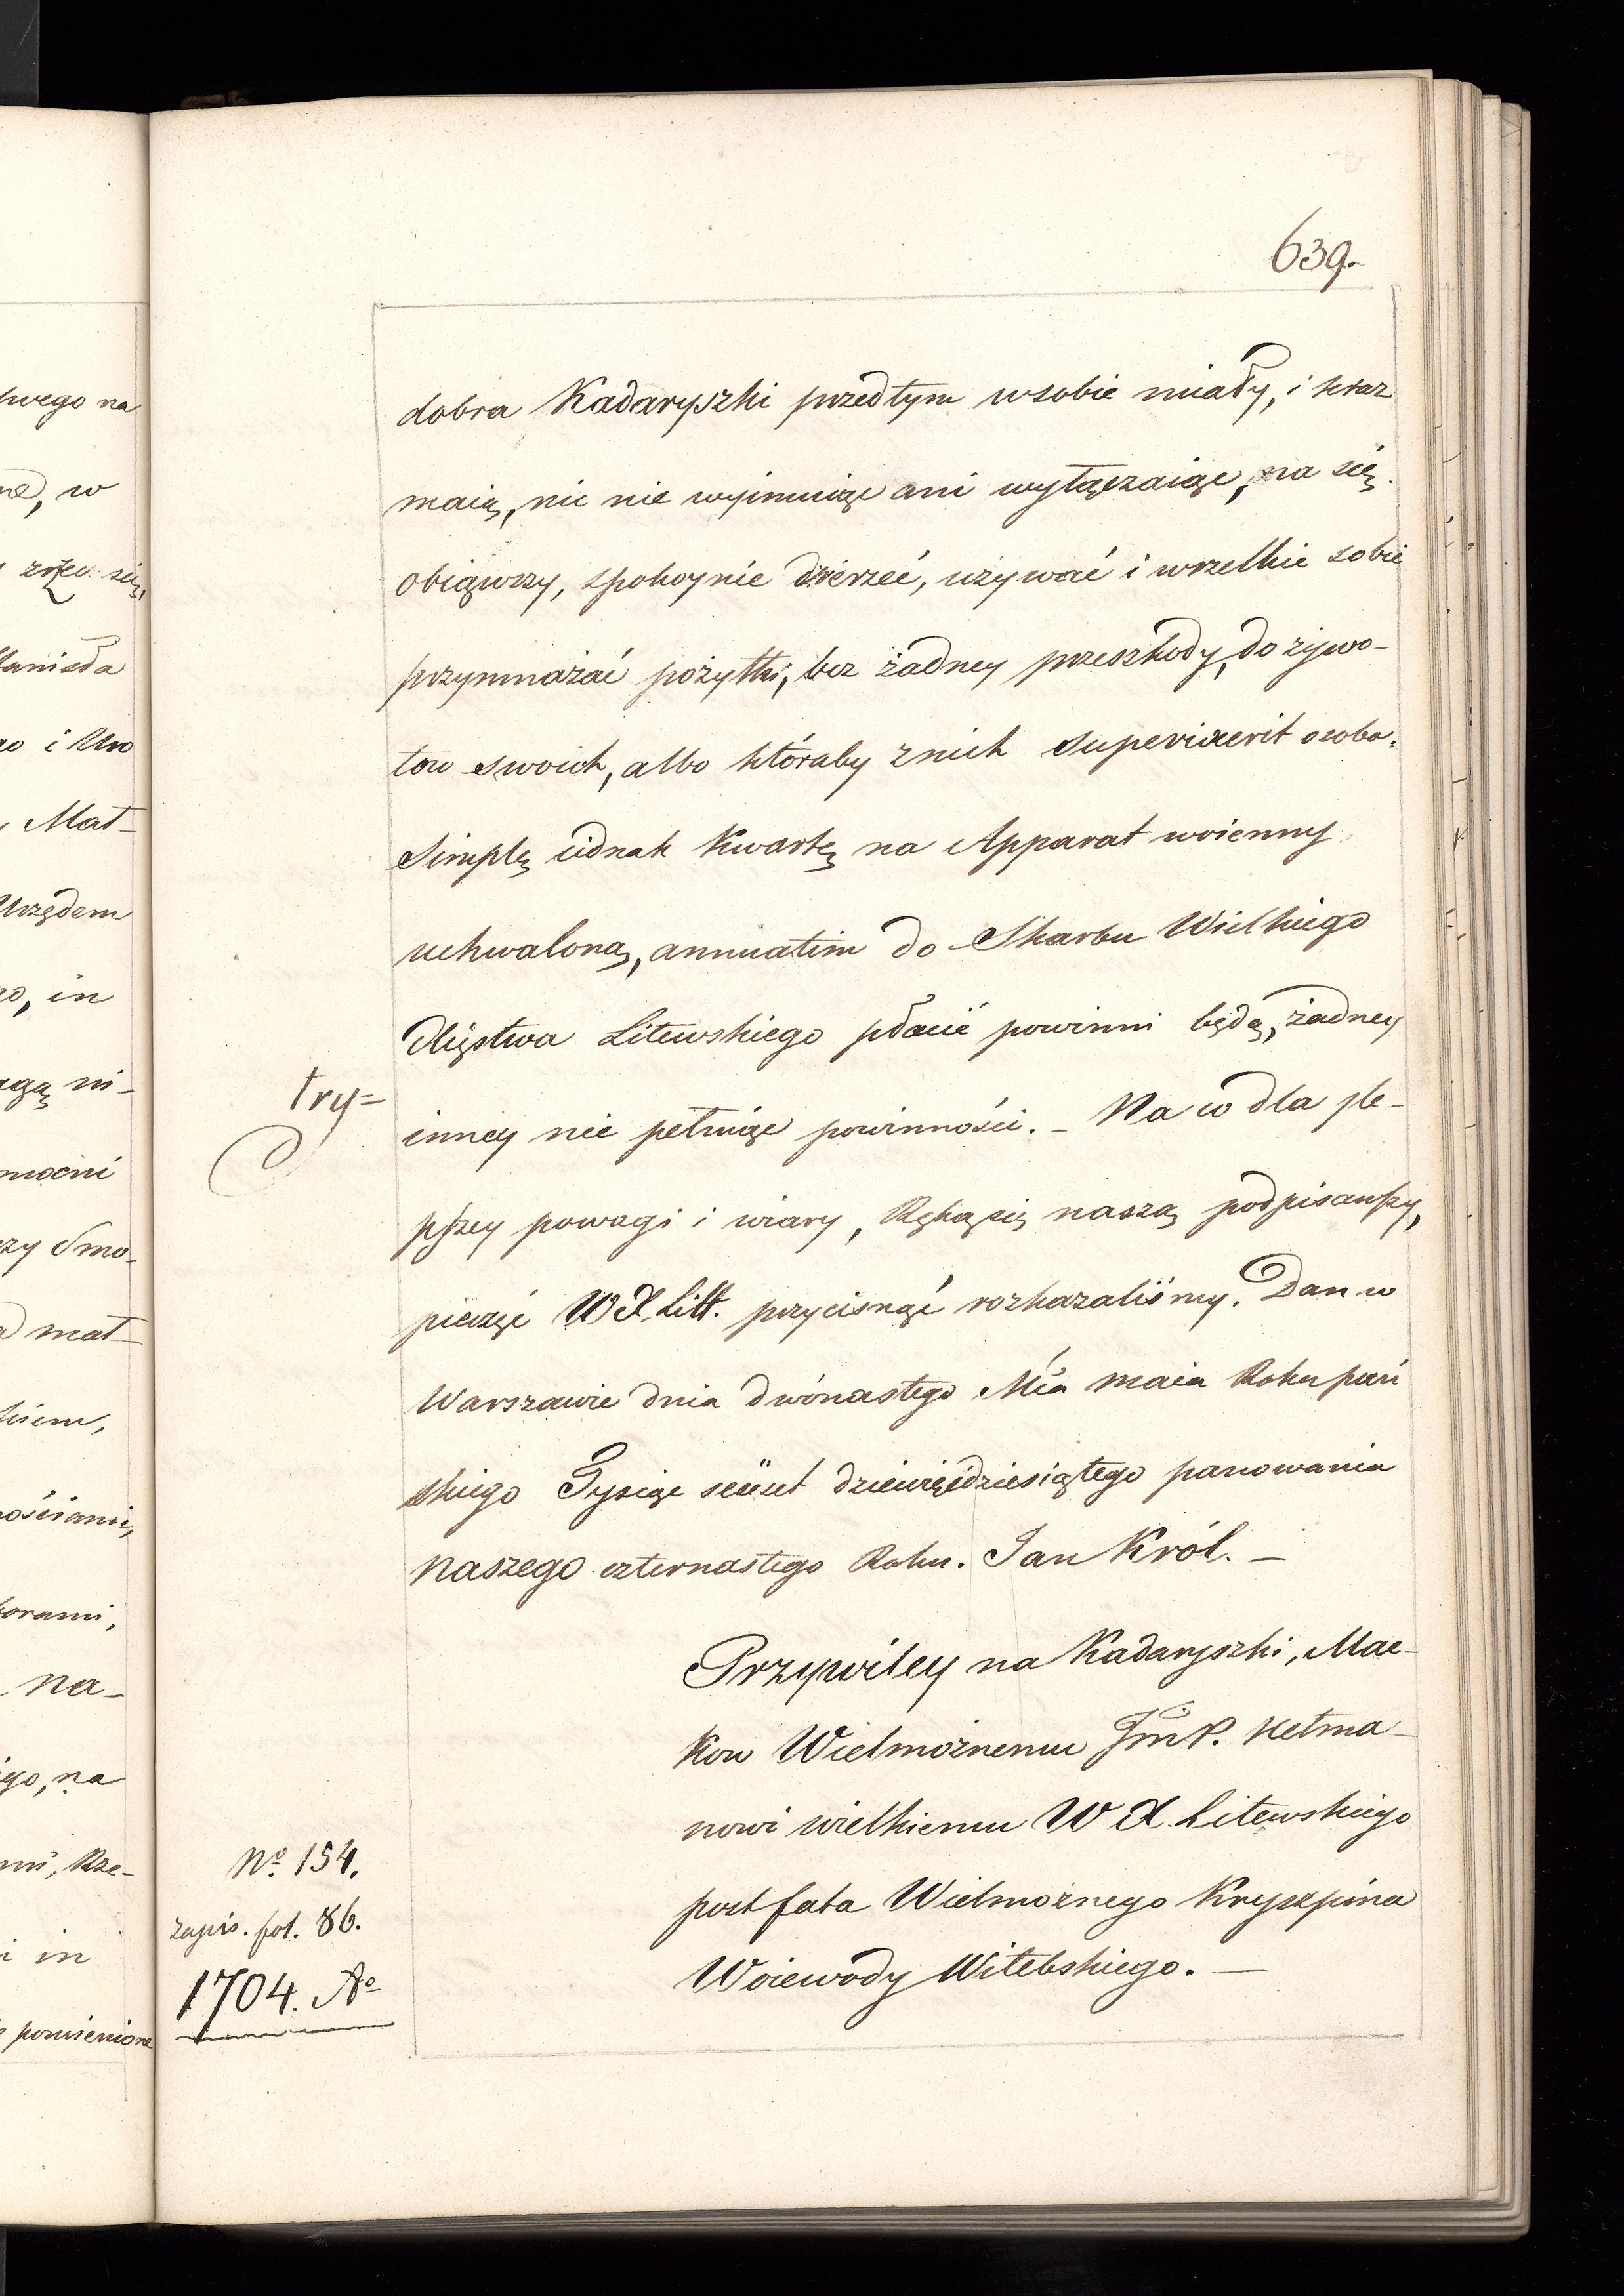 639.
dobra Kadaryszki przedtym wsobie miały, i teraz
maią, nic nie wyimuiąc ani wyłączaiąc, na się
obiąwszy, spokoynie dzierzeć, używać i wszelkie sobie
przymnażać pożytki, bez żadney przeszkody, do żywo-
tow swoich, albo któraby znich supervixerit osoba.
Simplę iednak Kwartę na Apparat woienny
uchwaloną, annuatim do Skarbu Wielkiego
Xięstwa Litewskiego płacić powinni będą, żadney
try=
inney nie pełniąc powinności. – Na co dla le-
pszey powagi i wiary, Ręką się naszą podpisawszy,
pieczęć W X Litt. przycisnąć rozkazaliśmy. Dan w
Warszawie dnia dwónastego Mca maia Roku pań
skiego Tysiąc sześćset dziewięćdziesiątego panowania
naszego czternastego Roku. Jan Król. –
Przywiley na Kadaryszki, Mac-
kow Wielmożnemu JmP. Hetma-
nowi wielkiemu W X. Litewskiego
post fata Wielmożnego Kryszpina
Woiewody Witebskiego. –
No. 154.
zapis. fol. 86.
1704. Ao
swego na
w
Mat-
i Uro
Urzędem
in
mocni
Smo-
mat-
na-
na
Rze-
i in
pomienione